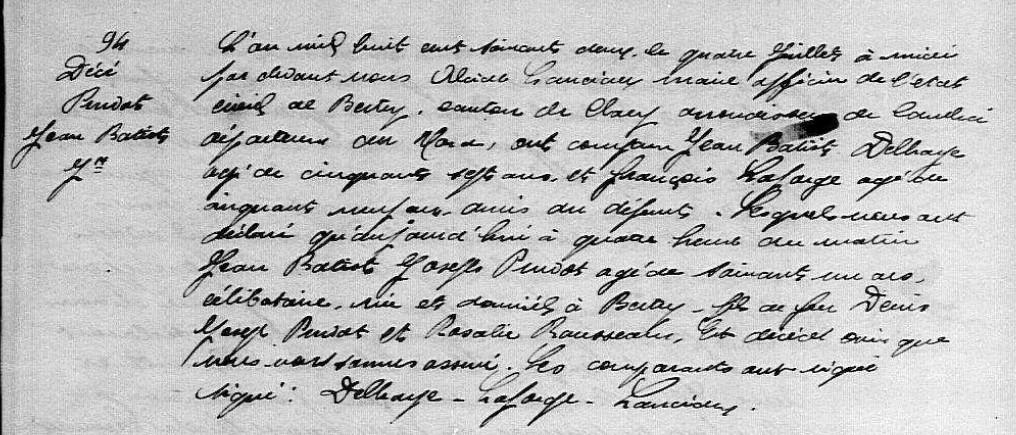 94
Décé
Pruvot
Jean Batiste
Jh
L'an mil huit cent soixante deux, le quatre Juillet à midi
par devant nous Olivier Lancieux maire officier de l'état
civil de Bertry, canton de Clary arrondissement de
département du Nord, ont comparu Jean Batiste Delhaye
agé de cinquante sept ans, et François Laforge agé de
cinquante neuf ans, amis du défunt. Lesquels nous ont
déclaré qu'aujourd'hui à quatre heures du matin
Jean Batiste Joseph Pruvot agé de soixante un ans,
célibataire, né et domicilié à Bertry, fils de feu Denis
Joseph Pruvot et Rosalie Rousseau, Est décédé ainsi que
nous nous sommes assuré. Les comparants ont signé
signé : Delhaye - Laforge - Lancieux.